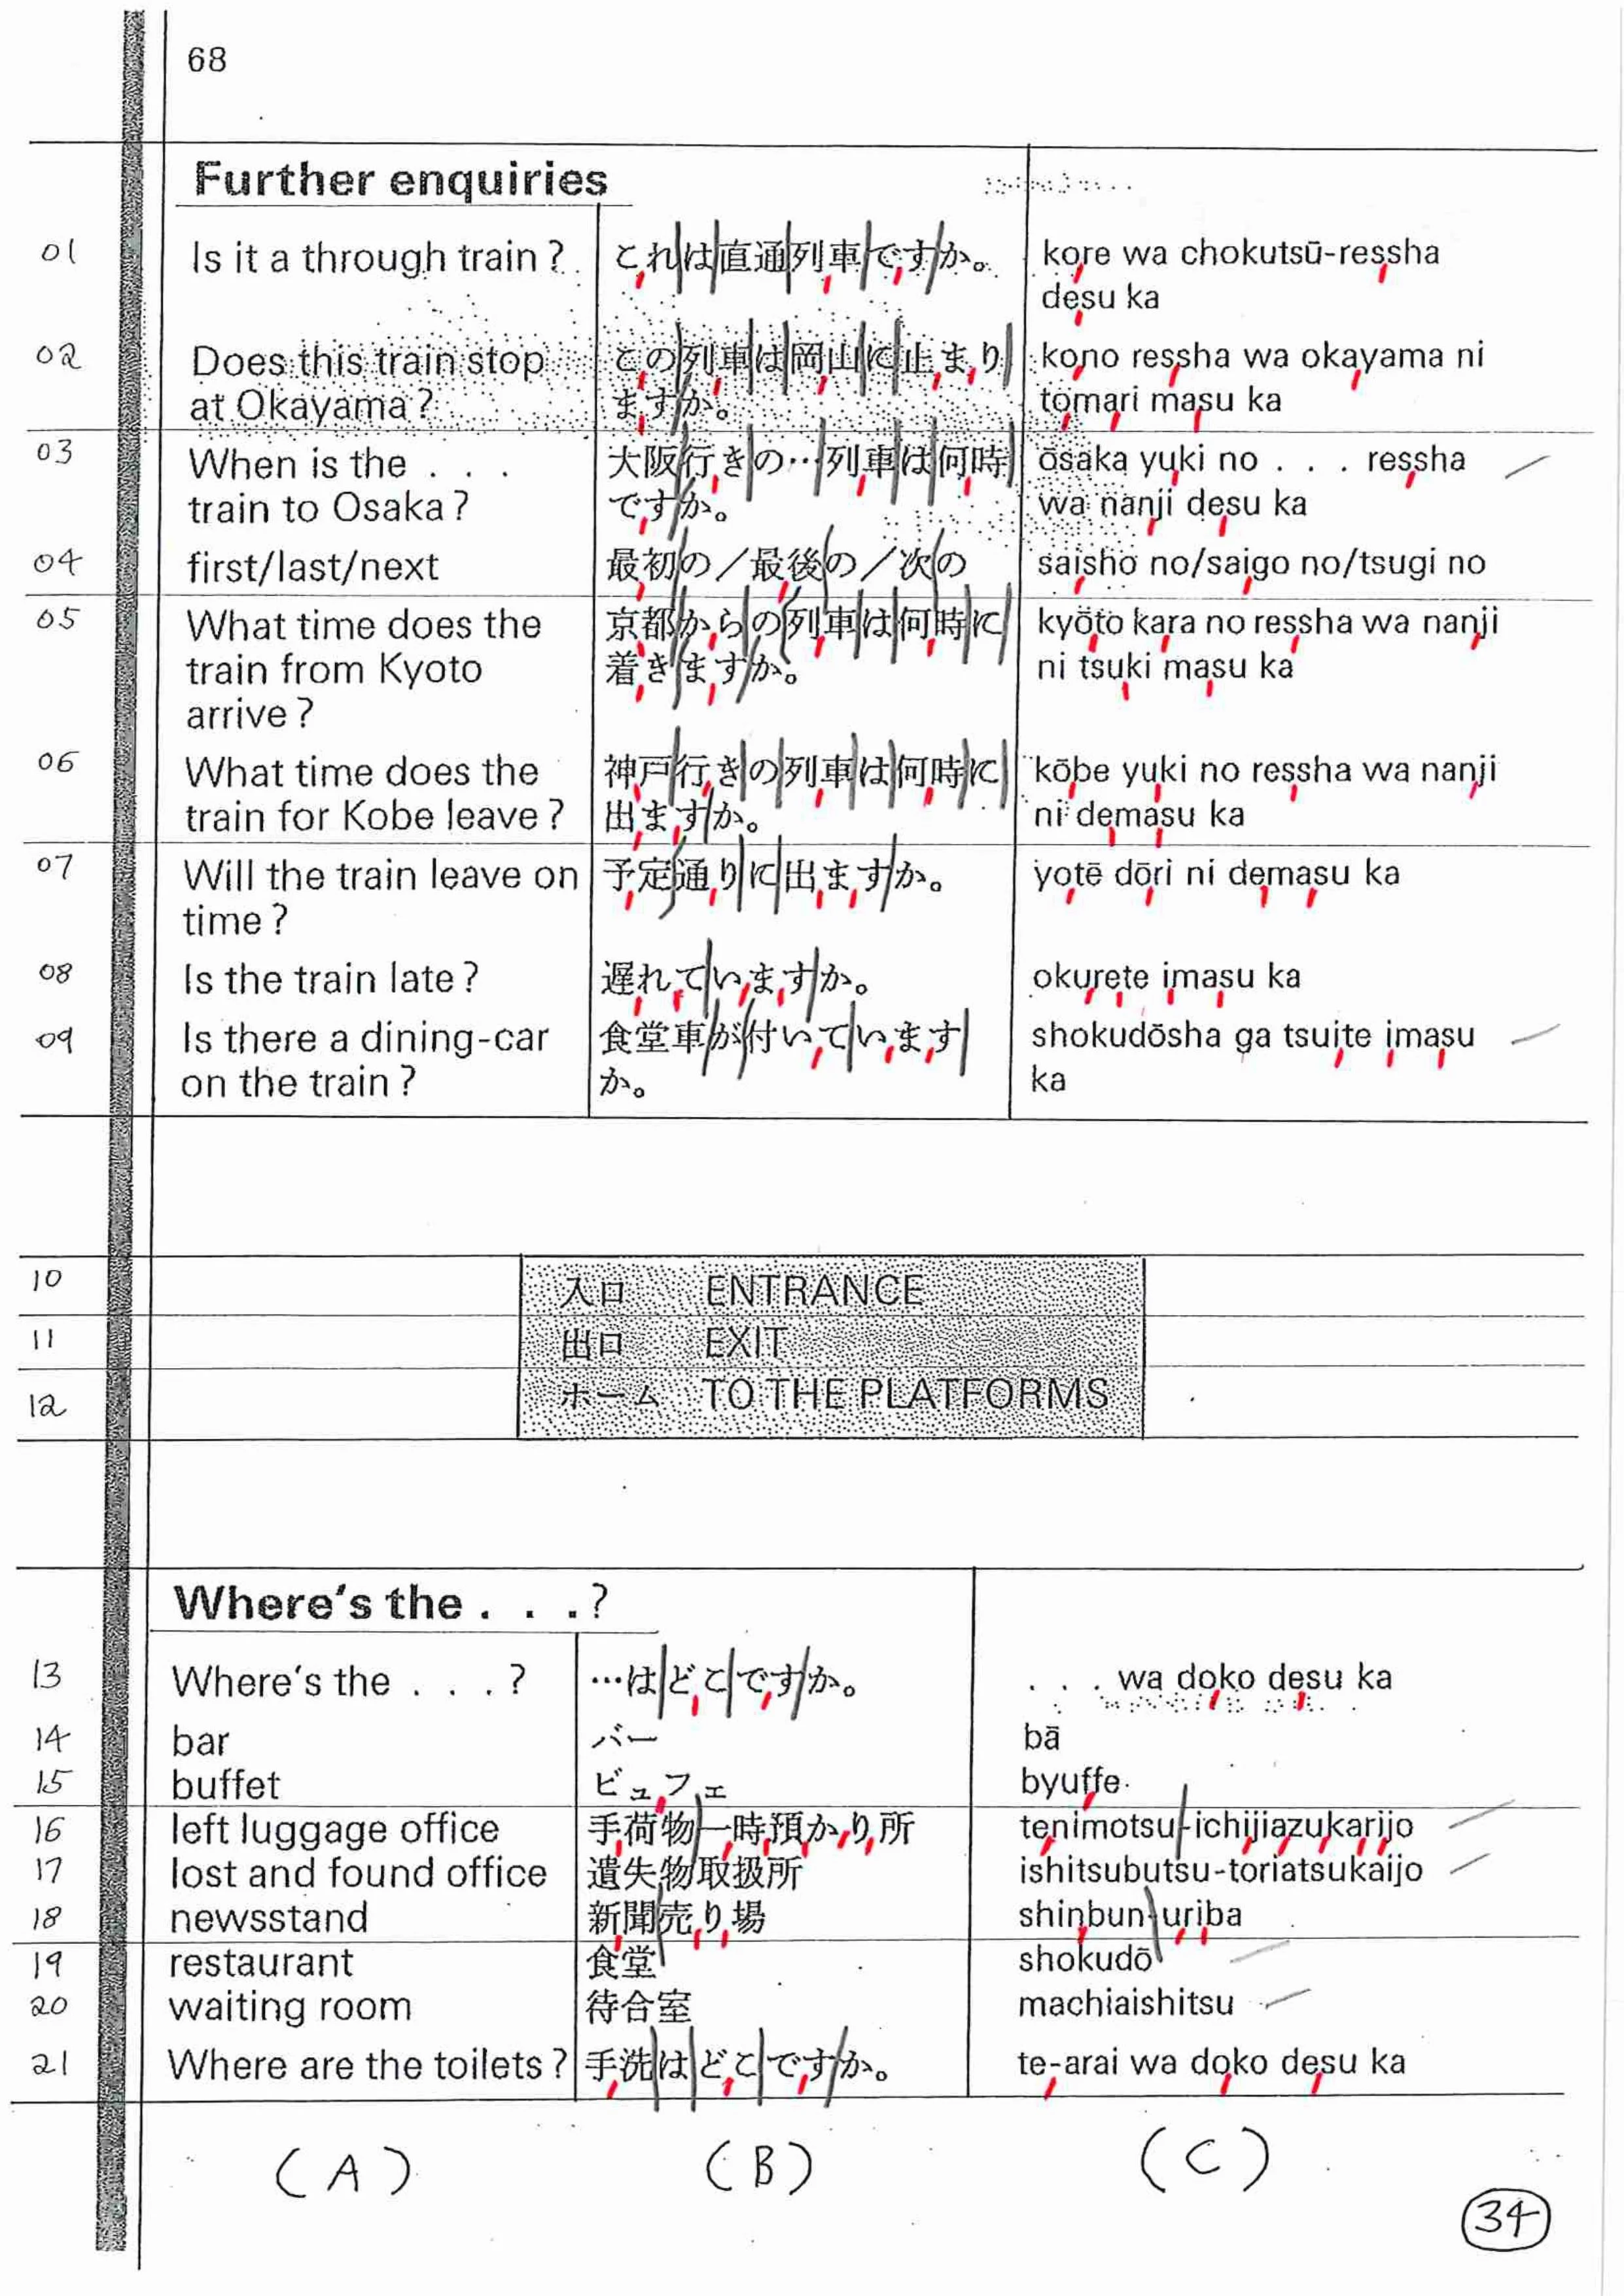 68
Further enquiries
01 Is it a through train? これは直通列車ですか。 kore wa chokutsū-ressha
desu ka
02 Does this train stop この列車は岡山に止まり kono ressha wa okayama ni
at Okayama? ますか。 tomari masu ka
03 When is the . . . 大阪行きの…列車は何時 ōsaka yuki no . . . ressha
train to Osaka? ですか。 wa nanji desu ka
04 first/last/next 最初の/最後の/次の saisho no/saigo no/tsugi no
05 What time does the 京都からの列車は何時に kyōto kara no ressha wa nanji
train from Kyoto 着きますか。 ni tsuki masu ka
arrive?
06 What time does the 神戸行きの列車は何時に kōbe yuki no ressha wa nanji
train for Kobe leave? 出ますか。 ni demasu ka
07 Will the train leave on 予定通りに出ますか。 yotē dōri ni demasu ka
time?
08 Is the train late? 遅れていますか。 okurete imasu ka
09 Is there a dining-car 食堂車が付いています shokudōsha ga tsuite imasu
on the train? か。 ka
10 入口 ENTRANCE
11 出口 EXIT
12 ホーム TO THE PLATFORMS
Where's the . . .?
13 Where's the . . .? …はどこですか。 . . . wa doko desu ka
14 bar バー bā
15 buffet ビュフェ byuffe
16 left luggage office 手荷物一時預かり所 tenimotsu-ichijiazukarijo
17 lost and found office 遺失物取扱所 ishitsubutsu-toriatsukaijo
18 newsstand 新聞売り場 shinbun-uriba
19 restaurant 食堂 shokudō
20 waiting room 待合室 machiaishitsu
21 Where are the toilets? 手洗はどこですか。 te-arai wa doko desu ka
(A) (B) (C)
34